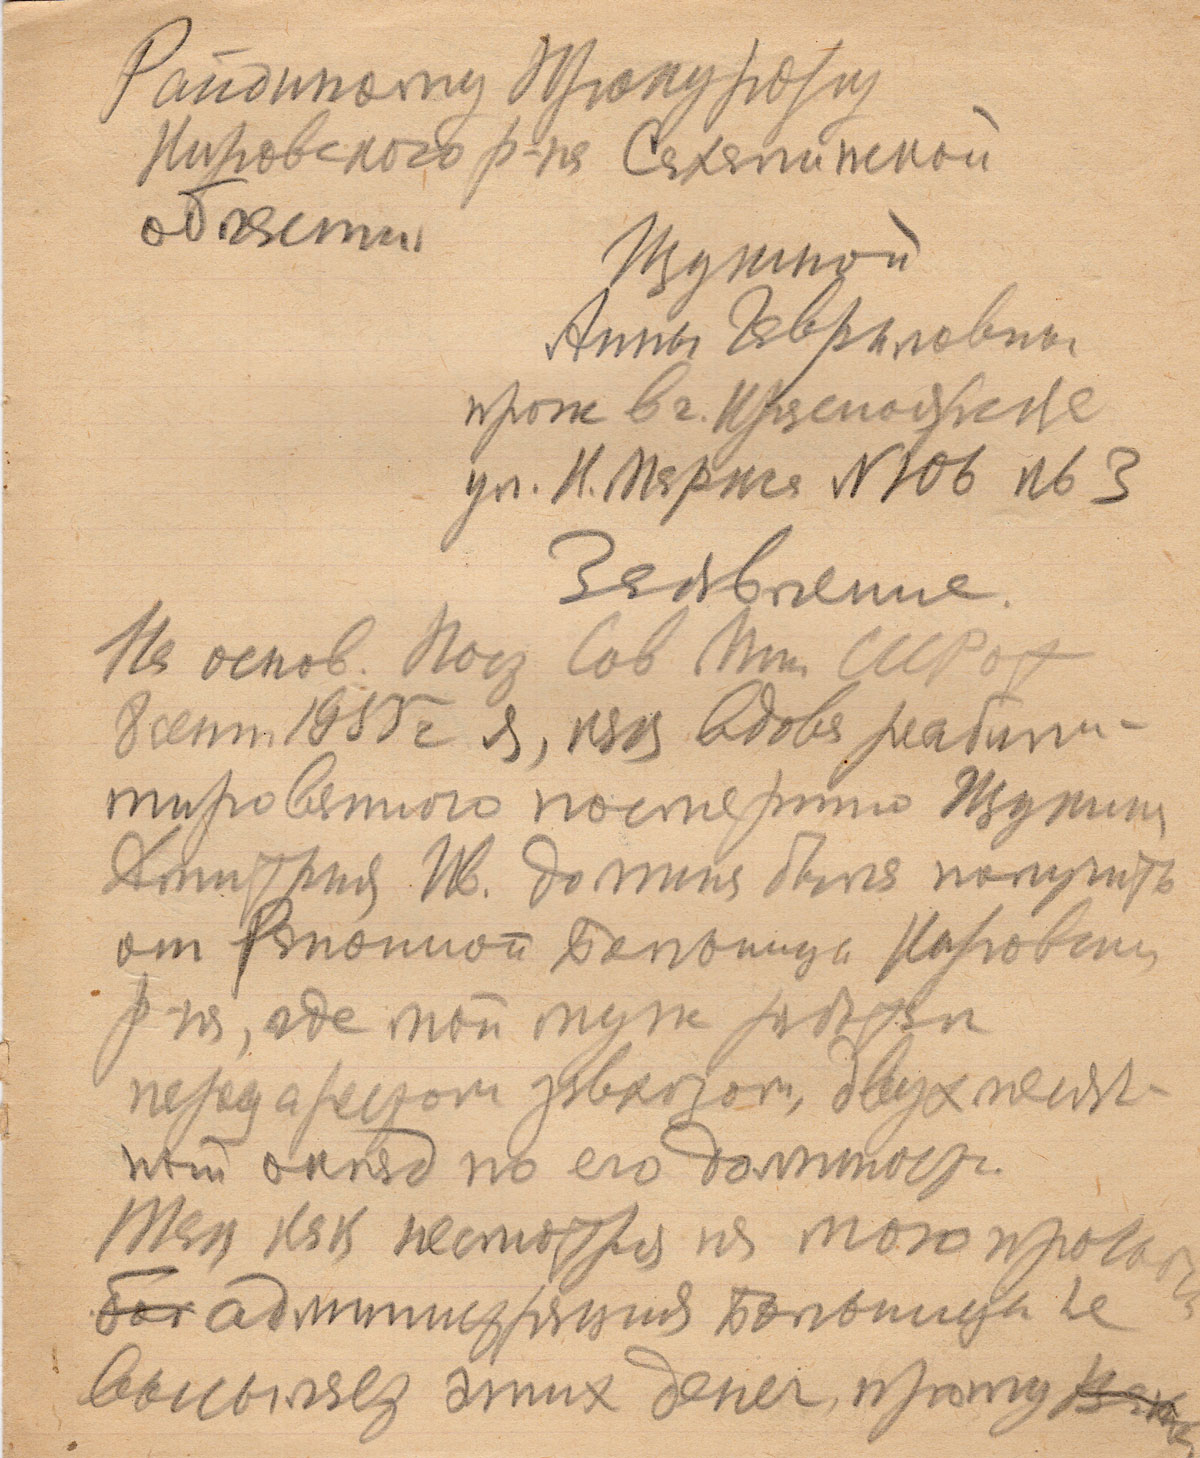 Районному Прокурору
Кировского р-на Сахалинской
области
Щукиной
Анны Гавриловны
прож в г. Красноярске
ул. К. Маркса № 106 кв 3
Заявление.
На основ. Пост Сов Мин СССР от
8 сент. 1955 г я, как вдова реабили-
тированного посмертно Щукина
Дмитрия Ив. должна была получить
от Районной Больницы Кировск
р-на, где мой муж работал
перед арестом завхозом, двухмесяч-
ный оклад по его должност.
Так как несмотря на мою
администрация Больницы не
высылает этих денег, прошу